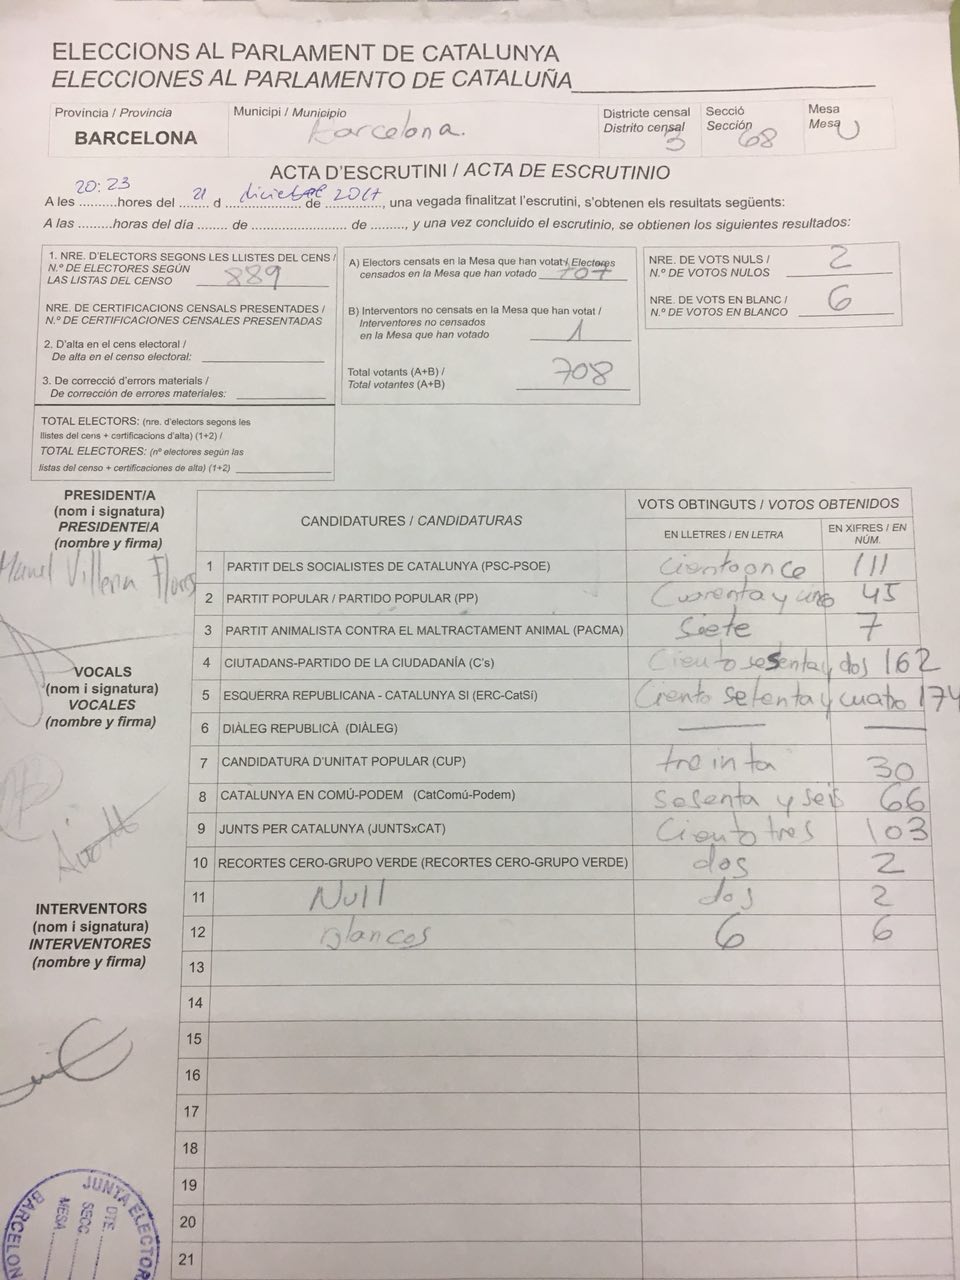 ELECCIONS AL PARLAMENT DE CATALUNYA
ELECCIONES AL PARLAMENTO DE CATALUÑA
Provincia / Provincia
BARCELONA
Municipi / Municipio
Barcelona.
Districte censal
Distrito censal
3
Secció
Sección
68
Mesa
Mesa
U
ACTA D'ESCRUTINI / ACTA DE ESCRUTINIO
20:23 21 diciembre 2017
A les .........hores del ........ d .................... de ........., una vegada finalitzat l'escrutini, s'obtenen els resultats següents:
A las .........horas del día ........ de ......................... de ........., y una vez concluido el escrutinio, se obtienen los siguientes resultados:
1. NRE. D'ELECTORS SEGONS LES LLISTES DEL CENS /
N.º DE ELECTORES SEGÚN
LAS LISTAS DEL CENSO 889
NRE. DE CERTIFICACIONS CENSALS PRESENTADES /
N.º DE CERTIFICACIONES CENSALES PRESENTADAS
2. D'alta en el cens electoral /
De alta en el censo electoral:
3. De correcció d'errors materials /
De corrección de errores materiales:
TOTAL ELECTORS: (nre. d'electors segons les
llistes del cens + certificacions d'alta) (1+2) /
TOTAL ELECTORES: (nº electores según las
listas del censo + certificaciones de alta) (1+2)
A) Electors censats en la Mesa que han votat / Electores
censados en la Mesa que han votado 707
B) Interventors no censats en la Mesa que han votat /
Interventores no censados
en la Mesa que han votado 1
Total votants (A+B) /
Total votantes (A+B) 708
NRE. DE VOTS NULS /
N.º DE VOTOS NULOS 2
NRE. DE VOTS EN BLANC /
N.º DE VOTOS EN BLANCO 6
PRESIDENT/A
(nom i signatura)
PRESIDENTE/A
(nombre y firma)
Manel Villena Flores
VOCALS
(nom i signatura)
VOCALES
(nombre y firma)
INTERVENTORS
(nom i signatura)
INTERVENTORES
(nombre y firma)
CANDIDATURES / CANDIDATURAS
VOTS OBTINGUTS / VOTOS OBTENIDOS
EN LLETRES / EN LETRA
EN XIFRES / EN NÚM.
1 PARTIT DELS SOCIALISTES DE CATALUNYA (PSC-PSOE) Ciento once 111
2 PARTIT POPULAR / PARTIDO POPULAR (PP) Cuarenta y 45
3 PARTIT ANIMALISTA CONTRA EL MALTRACTAMENT ANIMAL (PACMA) Siete 7
4 CIUTADANS-PARTIDO DE LA CIUDADANÍA (C's) Ciento sesenta y dos 162
5 ESQUERRA REPUBLICANA - CATALUNYA SI (ERC-CatSí) Ciento setenta y cuatro 174
6 DIÀLEG REPUBLICÀ (DIÀLEG)
7 CANDIDATURA D'UNITAT POPULAR (CUP) treinta 30
8 CATALUNYA EN COMÚ-PODEM (CatComú-Podem) Sesenta y seis 66
9 JUNTS PER CATALUNYA (JUNTSxCAT) Ciento tres 103
10 RECORTES CERO-GRUPO VERDE (RECORTES CERO-GRUPO VERDE) dos 2
11 Null dos 2
12 Blancos 6 6
13
14
15
16
17
18
19
20
21
JUNTA ELECTOR
DTE.
SECC.
MESA
BARCELON